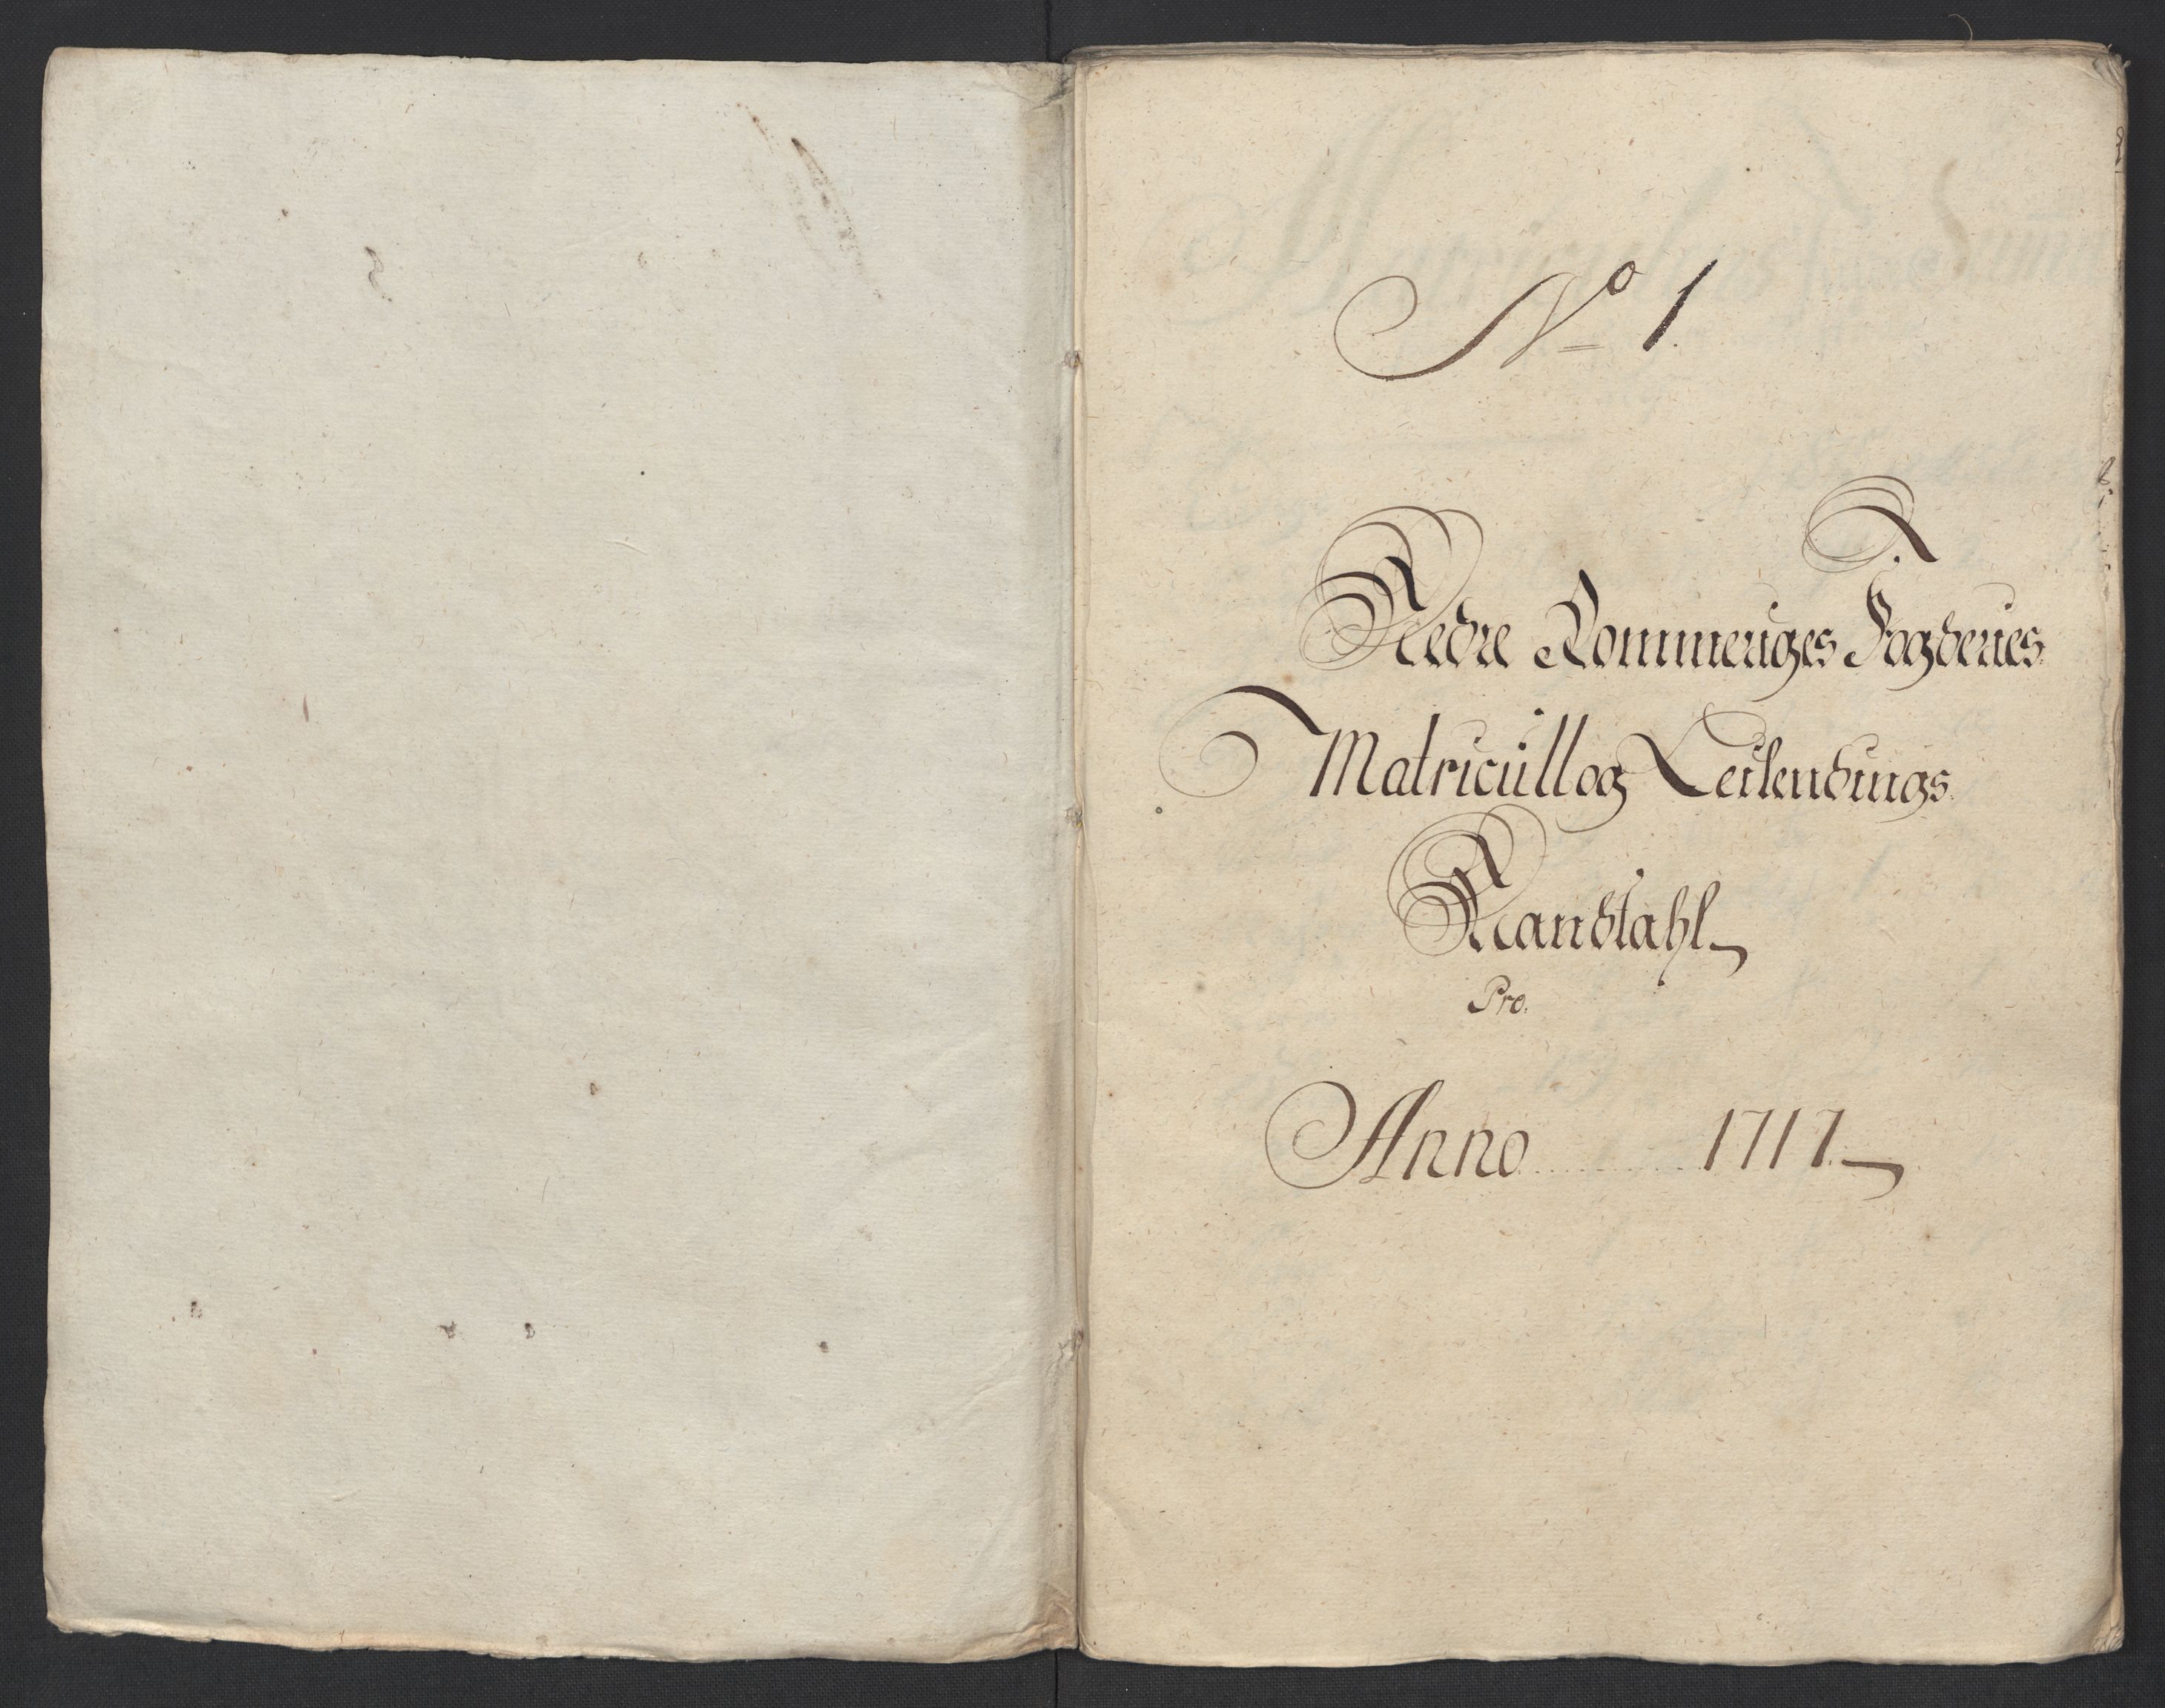 No 1
Nedre Rommeriges Fogderies
Matricull og Leilendings
Mandtahl
Pro.
Anno 1717